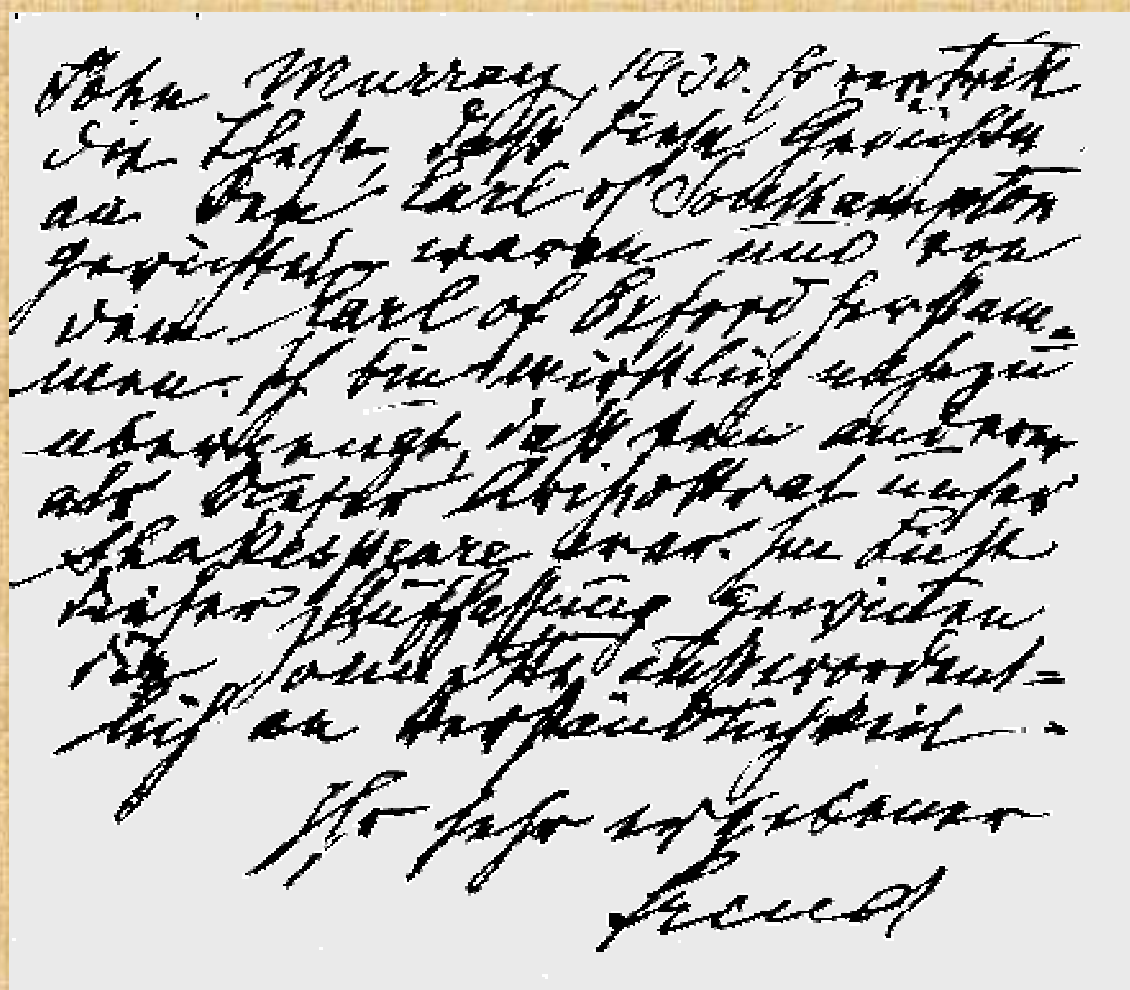 John Murray, 1930. Er vertritt
die These, daß diese Gedichte
an den Earl of Southampton
gerichtet waren und von
dem Earl of Oxford herstam=
men. Ich bin wirklich nahezu
überzeugt, daß kein anderer
als dieser Aristokrat unser
Shakespeare war. Im Lichte
dieser Auffassung gewinnen
die Sonette außerordent=
lich an Verständlichkeit.
Ihr sehr ergebener
Freud